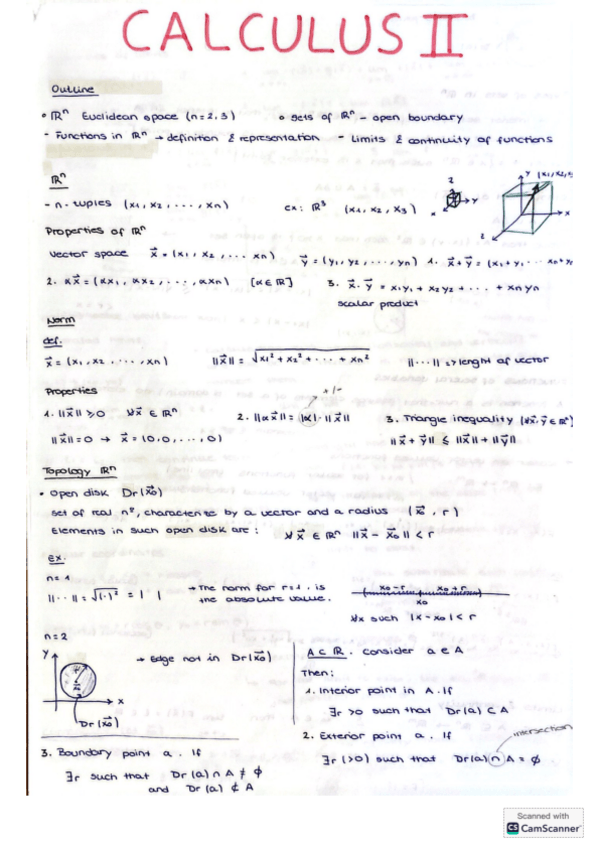 CALCULUS II
Outline
• ℝⁿ Euclidean space (n=2,3)   • sets of ℝⁿ - open boundary
- Functions in ℝⁿ → definition & representation   - Limits & continuity of functions
ℝⁿ
- n-tuples (x₁, x₂, ····, xₙ)   ex: ℝ³   (x₁, x₂, x₃)
z
y
x
y
x
z
Properties of ℝⁿ
Vector space   x⃗ = (x₁, x₂, ... xₙ)   y⃗ = (y₁, y₂, ····, yₙ)   1. x⃗+y⃗ = (x₁+y₁
2. αx⃗ = (αx₁, αx₂, ····, αxₙ)   [α∈ℝ]   3. x⃗·y⃗ = x₁y₁ + x₂y₂ + ··· + xₙyₙ
scalar product
Norm
def.
x⃗ = (x₁, x₂, ····, xₙ)   ||x⃗|| = √x₁² + x₂² + ··· + xₙ²   ||····|| => lenght of vector
Properties
+/-
1. ||x⃗|| ≥ 0   ∀x⃗ ∈ ℝⁿ   2. ||αx⃗|| = |α|·||x⃗||   3. Triangle inequality (∀x⃗,y⃗∈ℝⁿ)
||x⃗|| = 0 → x⃗ = (0,0,...,0)   ||x⃗ + y⃗|| ≤ ||x⃗|| + ||y⃗||
Topology ℝⁿ
• Open disk Dr(x⃗₀)
set of real nº, characterite by a vector and a radius (x⃗₀, r)
Elements in such open disk are: ∀x⃗ ∈ ℝⁿ ||x⃗ - x⃗₀|| < r
Ex.
n=1
||··|| = √(·)² = | |   → The norm for r=1. is
the absolute value.
x₀-r   x₀+r
x₀
∀x such |x-x₀|<r
n=2
y
→ Edge not in Dr(x⃗₀)
x
Dr(x⃗₀)
A ⊂ ℝ. Consider a ∈ A
Then:
1. Interior point in A. If
∃r >0 such that Dr(a) ⊂ A
2. Exterior point a. If
intersection
∃r (>0) such that Dr(a) ∩ A = ∅
3. Boundary point a. If
∃r such that Dr(a) ∩ A ≠ ∅
and Dr(a) ⊄ A
Scanned with
CS CamScanner